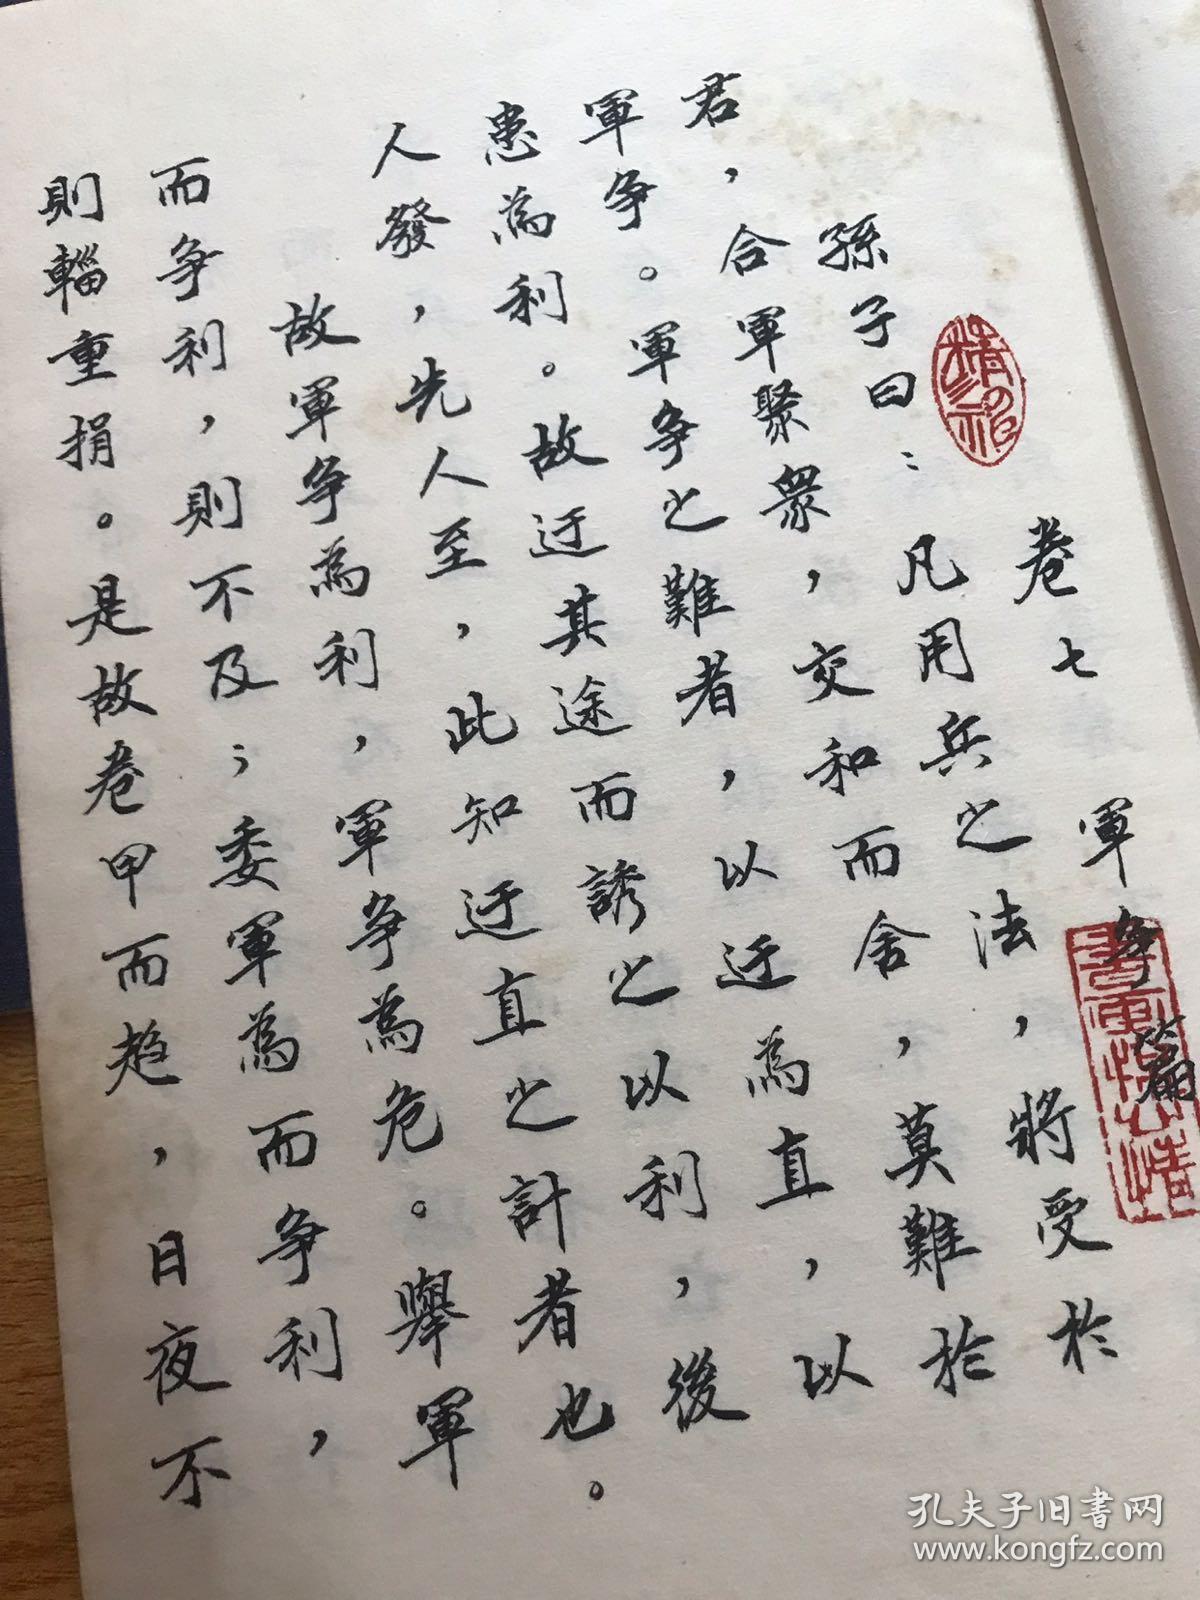 卷七 軍爭篇
孫子曰：凡用兵之法，將受於
君，合軍聚衆，交和而舍，莫難於
軍爭。軍爭之難者，以迂為直，以
患為利。故迂其途而誘之以利，後
人發，先人至，此知迂直之計者也。
故軍爭為利，軍爭為危。舉軍
而爭利，則不及；委軍為而爭利，
則輜重捐。是故卷甲而趋，日夜不
孔夫子旧书网
www.kongfz.com